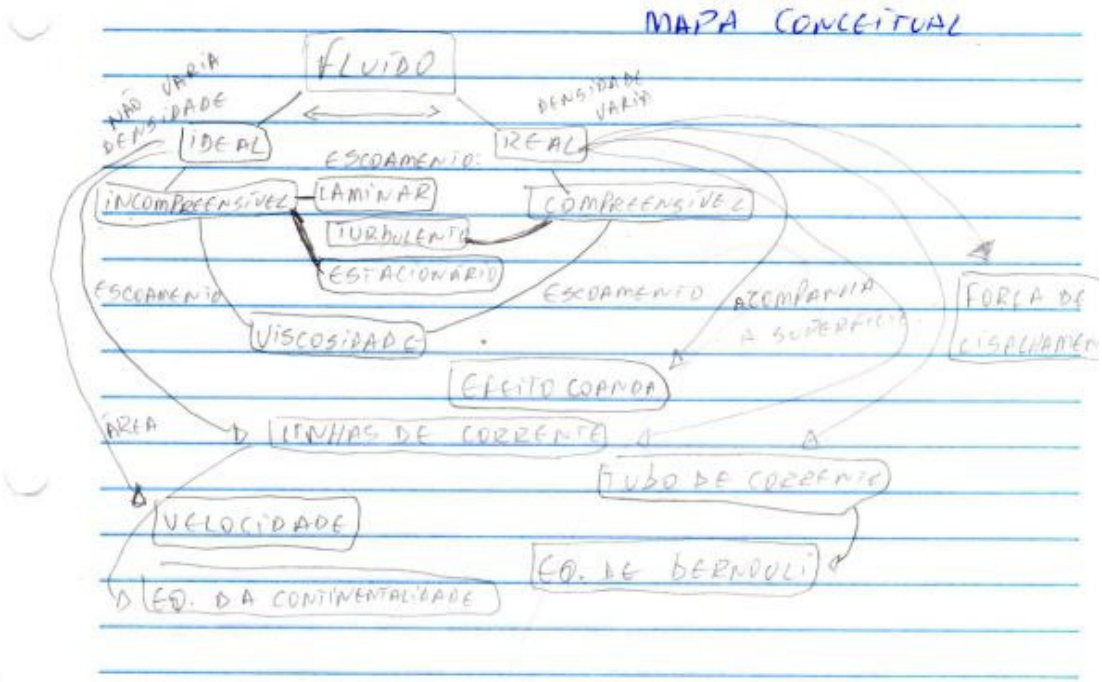 MAPA CONCEITUAL
FLUIDO
NÃO VARIA
DENSIDADE
DENSIDADE
VARIA
IDEAL
REAL
ESCOAMENTO:
INCOMPREENSÍVEL
LAMINAR
COMPREENSÍVEL
TURBULENTO
ESTACIONÁRIO
ESCOAMENTO
ESCOAMENTO
ACOMPANHA
A SUPERFÍCIE
FORÇA DE
CISALHAMEN
VISCOSIDADE
EFEITO COANDA
ÁREA
LINHAS DE CORRENTE
TUBO DE CORRENTE
VELOCIDADE
EQ. DE BERNOULI
EQ. DA CONTINENTALIDADE